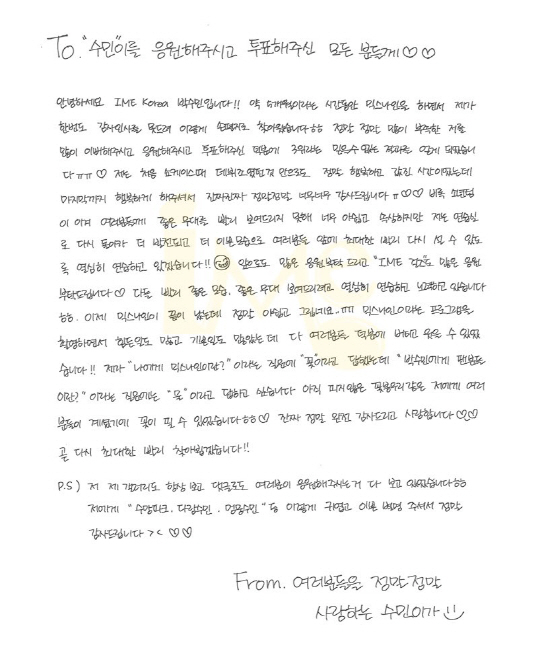 To. "수민"이를 응원해주시고 투표해주신 모든 분들께♡♡
안녕하세요 IME Korea 박수민입니다!! 약 6개월이라는 시간동안 믹스나인을 하면서 제가
한번도 감사인사를 못드려 이렇게 손편지로 찾아왔습니다ㅎㅎ 정말 정말 많이 부족한 저를
많이 이뻐해주시고 응원해주시고 투표해주신 덕분에 3위라는 믿을수 없는 결과를 얻게 되었습니
다ㅠㅠ♡ 저는 처음 쇼케이스때 데뷔조였던것 만으로도 정말 행복하고 값진 시간이었는데
마지막까지 행복하게 해주셔서 진짜진짜 정말정말 너무너무 감사드립니다 ㅠ♡♡ 비록
이 아쉬 여러분들께 좋은 무대를 빨리 보여드리지 못해 너무 아쉽고 속상하지만 저는 연습실
로 다시 돌아가 더 발전되고 더 이쁜모습으로 여러분들 앞에 최대한 빨리 다시 설 수 있도
록 열심히 연습하고 있겠습니다!! 앞으로도 많은 응원부탁드리고 "IME 걸즈"도 많은 응원
부탁드립니다♡ 다들 빨리 좋은 모습, 좋은 무대 보여드리려고 열심히 연습하고 노력하고 있습니다
ㅎㅎ. 이제 믹스나인이 끝이 났는데 정말 아쉽고 그립네요..ㅠㅠ 믹스나인이라는 프로그램을
촬영하면서 힘든일도 많고 기쁜일도 많았는데 다 여러분들 덕분에 버티고 웃을 수 있었
습니다!! 제가 "나에게 믹스나인이란?" 이라는 질문에 "꽃"이라고 답했는데 "박수민에게 팬분들
이란?" 이라는 질문에는 "물"이라고 답하고 싶습니다 아직 피지않은 꽃봉우리같은 저에게 여러
분들이 계셨기에 꽃이 필 수 있었습니다ㅎㅎ♡ 진짜 정말 완전 감사드리고 사랑합니다♡♡
곧 다시 최대한 빨리 찾아뵙겠습니다!!
P.S) 저 제 갤러리도 항상 보고 댓글로도 여러분이 응원해주시는거 다 보고 있었습니다ㅎㅎ
저에게 "수망파크, 다람수민, 멍뭉수민" 등 이렇게 귀엽고 이쁜 별명 주셔서 정말
감사드립니다 >< ♡♡
From. 여러분들을 정말정말
사랑하는 수민이가
IME